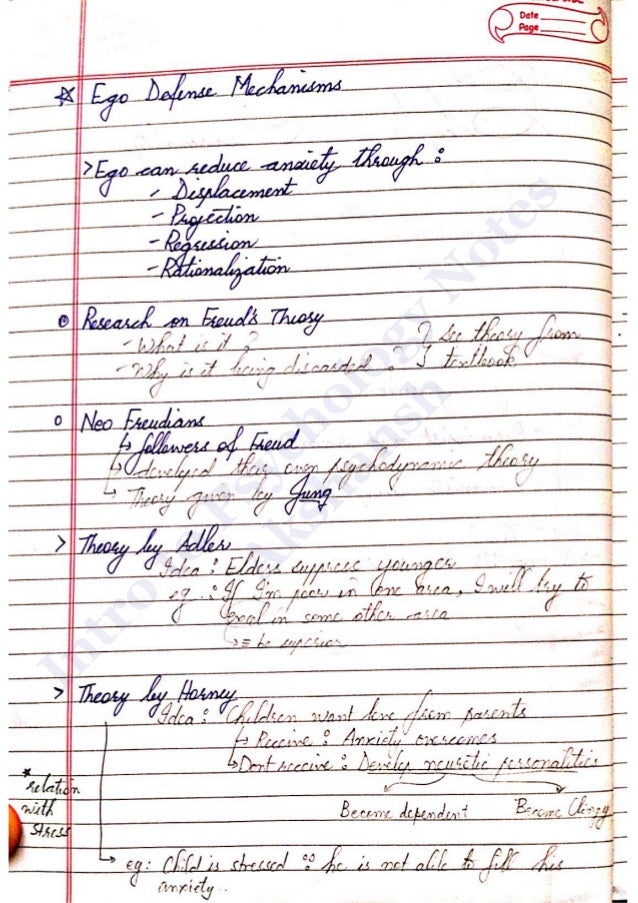 Date
Page
☆ Ego Defense Mechanisms
> Ego can reduce anxiety through :
- Displacement
- Projection
- Regression
- Rationalization
Research on Freud's Theory
- What is it ?
- Why is it being discarded :
} See theory from
textbook
o Neo Freudians
↳ followers of Freud
↳ developed their own psychodynamic theory
↳ Theory given by Jung
> Theory by Adler
Idea : Elders suppress younger
eg : If I'm poor in one area, I will try to
excel in some other area
↳ = be superior
> Theory by Horney
Idea : Children want love from parents
↳ Receive : Anxiety overcomes
↳ Dont receive : Develop neurotic personalities
Become dependent Become Clingy
* relation
with
stress
↳ eg: Child is stressed ∵ he is not able to fill his
anxiety..
Intro to Psychology Notes
Akshansh